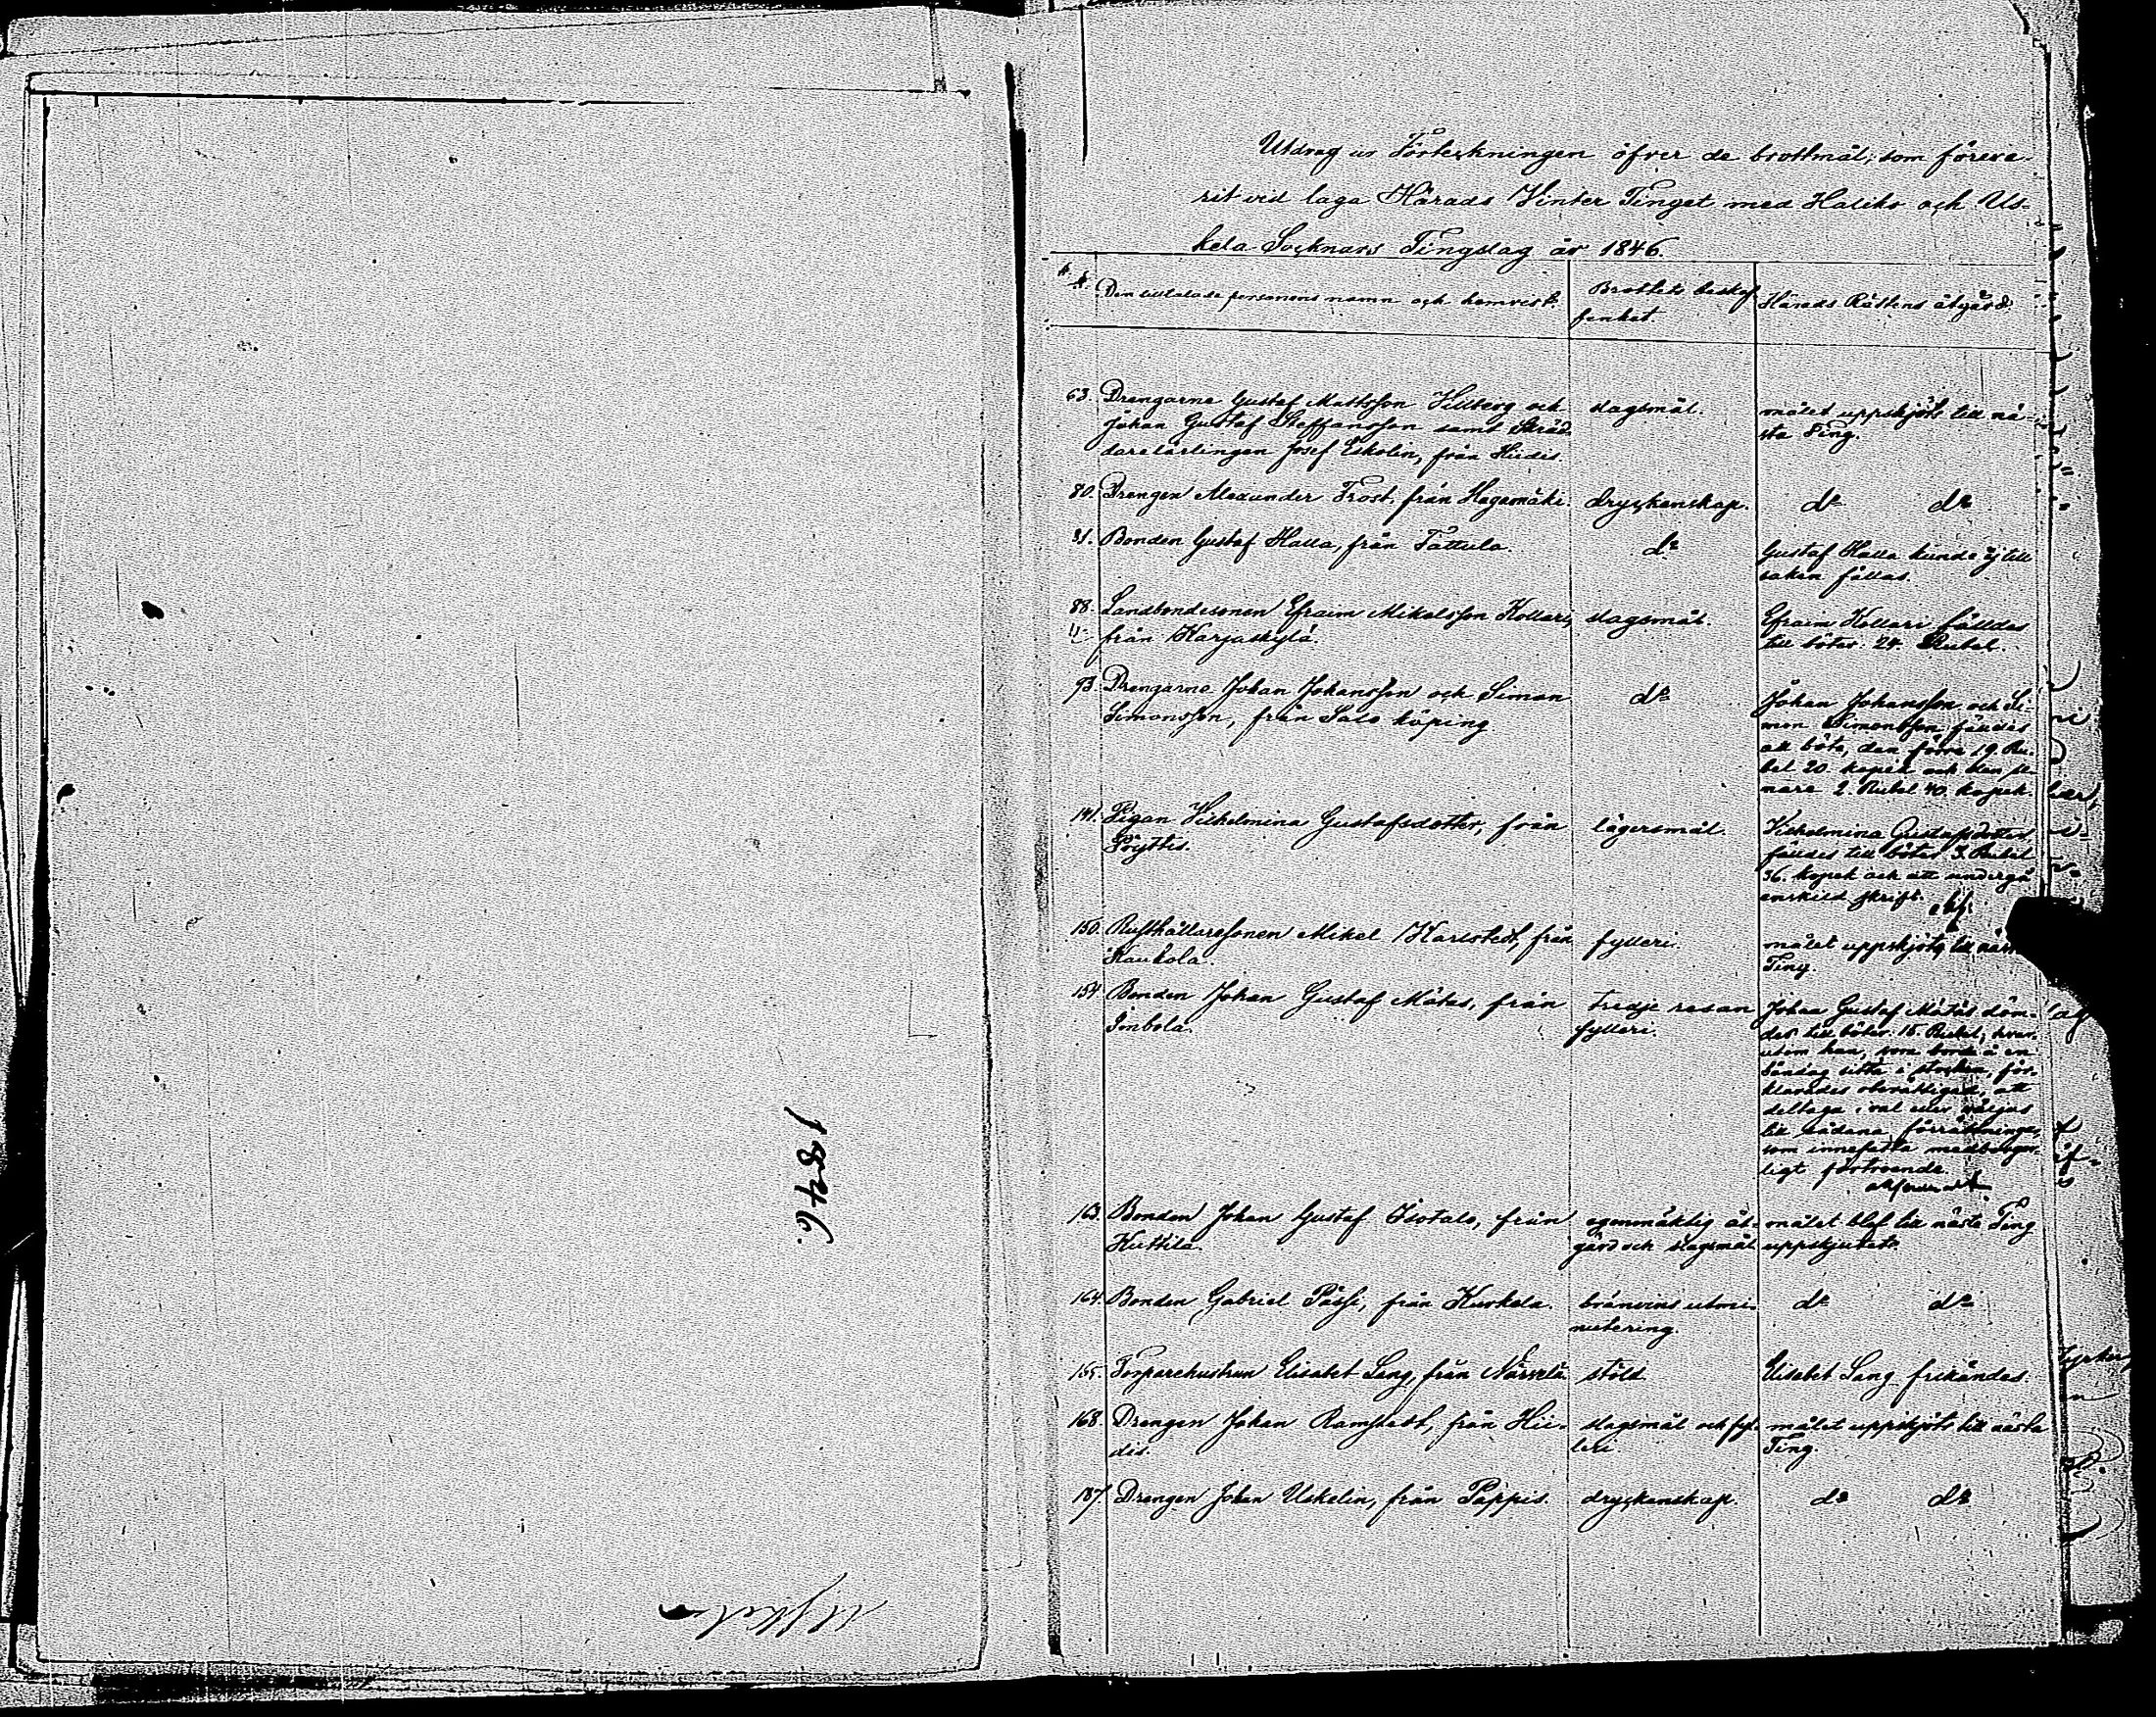 1846.
Utdrag ur Förteckningen öfver de brottmål, som föreva-
rit vid laga Härads Vinter Tinget med Haliko och Us-
kela Socknars Tingslag år 1846.
Den tilltalade personens namn och hemvist.
Brottets beskaf-
fenhet.
Härads Rättens åtgärd.
63. Drengarne Gustaf Mattsson Villberg och
Johan Gustaf Steffansson samt Skräd-
darelärlingen Josef Eskolin, från Hirdis.
slagsmål.
målet uppskjöts till nä-
sta Ting.
80. Drengen Alexander Frost, från Hagamäki.
dryckenskap.
do do
81. Bonden Gustaf Halla, från Tattula.
do
Gustaf Halla kunde ej till
saken fällas.
88. Landbondesonen Efraim Mikelsson Kollari,
från Karjaskylä.
slagsmål.
Efraim Kollari fälldes
till böter 24. Rubel.
93. Drengarne Johan Johansson och Simon
Simonsson, från Salo köping
do
Johan Johansson och Si-
mon Simonsson fälldes
att böta, den förre 19. Ru-
bel 20. kopek och den se-
nare 2. Rubel 40. kopek.
141. Pigan Vilhelmina Gustafsdotter, från
Pöyttis.
lägersmål.
Vilhelmina Gustafsdotter
fälldes till böter 3. Rubel
36. kopek och att undergå
enskild skrift.
150. Rusthållaresonen Mikel Karlstedt, från
Kaukola.
fylleri.
målet uppskjöts till
Ting.
154. Bonden Johan Gustaf Mätäs, från
Isonbola.
tredje resan
fylleri.
Johan Gustaf Mätäs döm-
des till böter 15. Rubel, hvar-
utom han, som borde å en
Söndag sitta i stocken, för-
klarades oberättigad, att
deltaga i val eller väljas
till sådana förrättningar,
som innefatta medborger-
ligt förtroende.
163. Bonden Johan Gustaf Isotalo, från
Kuttila.
egenmäktig åt-
gärd och slagsmål
målet blef till nästa Ting
uppskjutet.
164. Bonden Gabriel Pässi, från Kurkela.
bränvins utmi-
nutering.
do do
165. Torparehustrun Elisabet Lang, från Närvelä.
stöld
Elisabet Lang frikändes.
168. Drengen Johan Ramstedt, från Hii-
dis.
slagsmål och fyl-
leri
målet uppskjöts till nästa
Ting.
187. Drengen Johan Uskelin, från Pappis.
dryckenskap.
do do